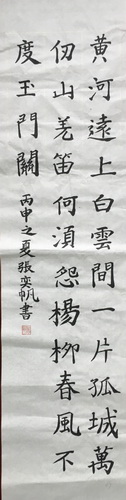 黄河遠上白雲間一片孤城萬
仞山羌笛何須怨楊柳春風不
度玉門關
丙申之夏張奕帆書